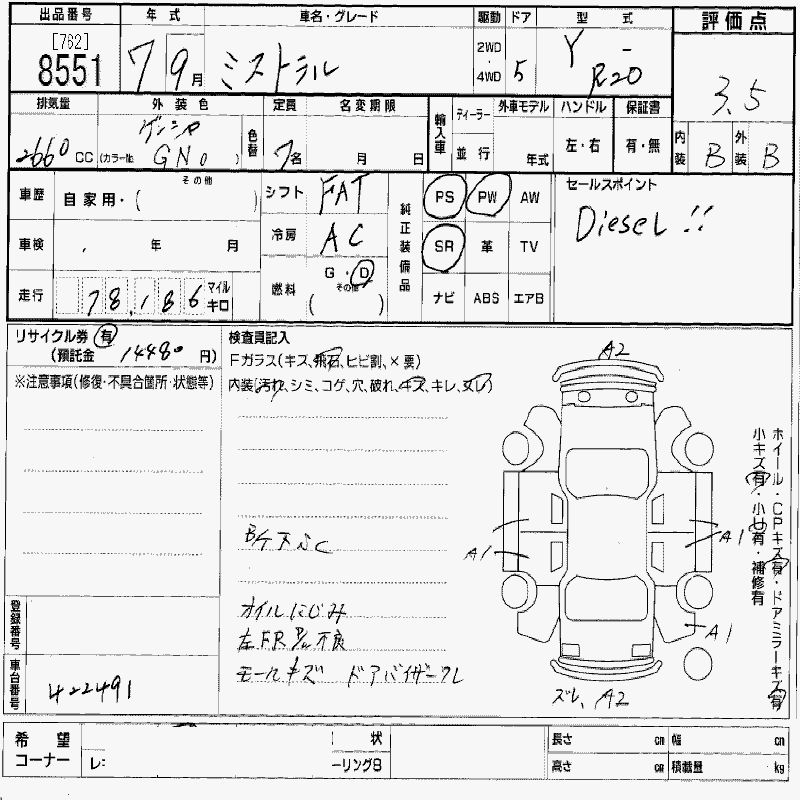 出品番号 年式 車名・グレード 駆動 ドア 型式 評価点
[762]
8551
7 9月 ミストラル 2WD・4WD 5 Y-R20 3.5
排気量 外装色 定員 名変期限 輸入車 ディーラー 外車モデル ハンドル 保証書 内装 B 外装 B
2660 CC (カラーNo GN0) 色替 7名 月 日 並行 年式 左・右 有・無
車歴 自家用・( その他 ) シフト FAT 純正装備品 PS PW AW セールスポイント
Diesel!!
車検 年 月 冷房 AC SR 革 TV
走行 78,186 マイル キロ 燃料 G・D その他( ) ナビ ABS エアB
リサイクル券 有
(預託金 14480 円)
※注意事項(修復・不具合箇所・状態等)
検査員記入
Fガラス(キズ、飛石、ヒビ割、×要)
内装(汚れ、シミ、コゲ、穴、破れ、キズ、キレ、ヌレ)
オイルにじみ
左FR 不良
モールキズ ドアバイザーワレ
A2
A1
A1
A1
ズレ、A2
ホイール・CPキズ有・ドアミラーキズ有
小キズ有・小U有・補修有
登録番号
車台番号 422491
希望コーナー レ: 状
ーリング8
長さ cm 幅 cm
高さ cm 積載量 kg